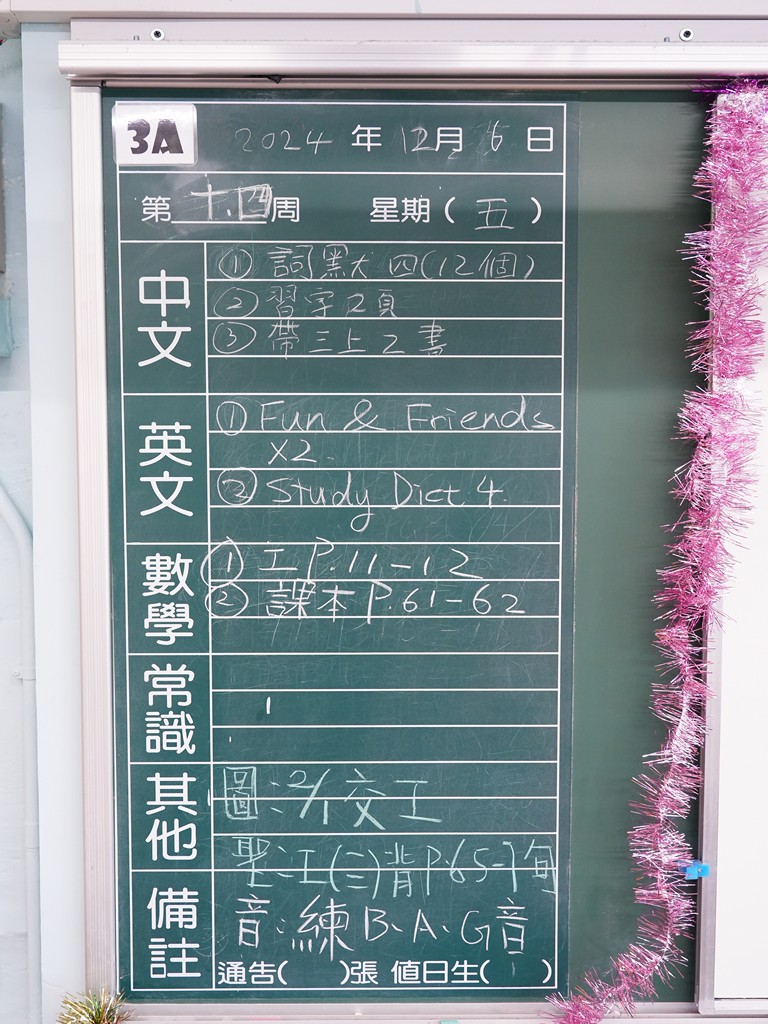 3A 2024 年 12月 6 日
第十四周 星期(五)
中文
① 詞默 四(12個)
② 習字2頁
③ 帶三上2書
英文
① Fun & Friends
X2.
② Study Dict 4.
數學
① 工 P.11-12
② 課本 P.61-62
常識
其他
圖:2/1交工
聖:工(三)背P.65-7
備註
音:練B、A、G音
通告( )張 值日生( )